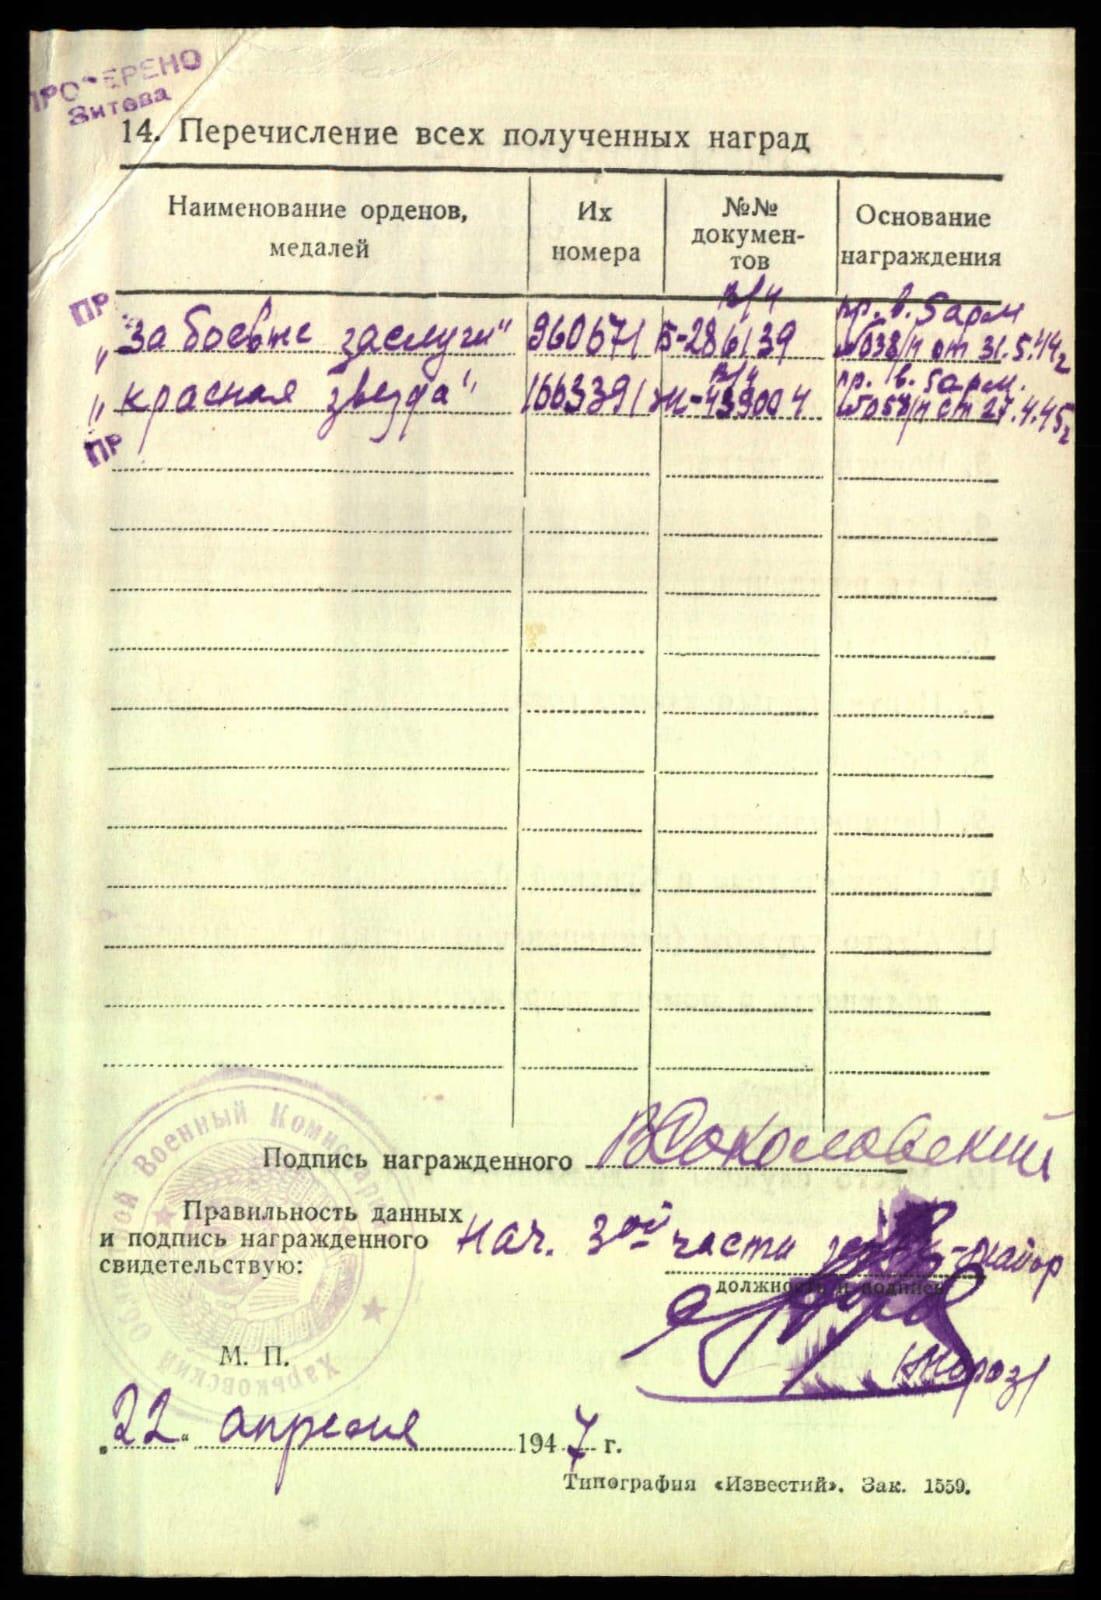 ПРОВЕРЕНО
Зитева
14. Перечисление всех полученных наград
Наименование орденов,
медалей
Их
номера
№№
докумен-
тов
Основание
награждения
ПР
в/ч
пр. в. 5 арм
„За боевые заслуги" 960671 Б-286139 №038/н от 31.5.44г
в/ч
пр. в. 5 арм.
„Красная звезда" 1663391 Ж-439004 №058/н от 27.4.45г
ПР
Подпись награжденного ВСоколовский
Правильность данных
и подпись награжденного
свидетельствую:
Нач. 3ей части -майор
должность и подпись
/Мороз/
М. П.
Областной Военный Комиссариат
Харьковский
„22" апреля 1947 г.
Типография «Известий». Зак. 1559.